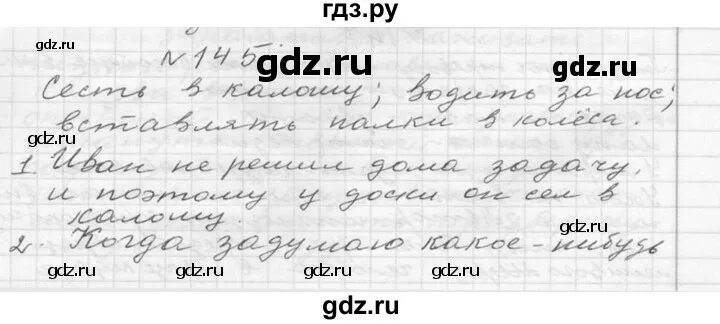 гдз.ру
№145.
gdz.ru
gdz.ru
Сесть в калошу; водить за нос;
gdz.ru
gdz.ru
вставлять палки в колёса.
1 Иван не решил дома задачу,
gdz.ru
и поэтому у доски он сел в
калошу.
gdz.ru
gdz.ru
2. Когда задумаю какое-нибудь
gdz.ru
gdz.ru
gdz.ru
gdz.ru
gdz.ru
gdz.ru